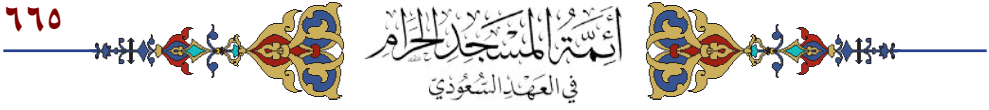 ٦٦٥
أَئِمَّةُ المَسْجِدِ الحَرَامِ
في العَهْدِ السُّعُودِيِّ